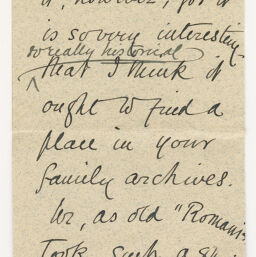 it, however, for it
is so very interesting
so really historical
that I think it
ought to find a
place in your
family archives.
as old "Romanis
Took such a